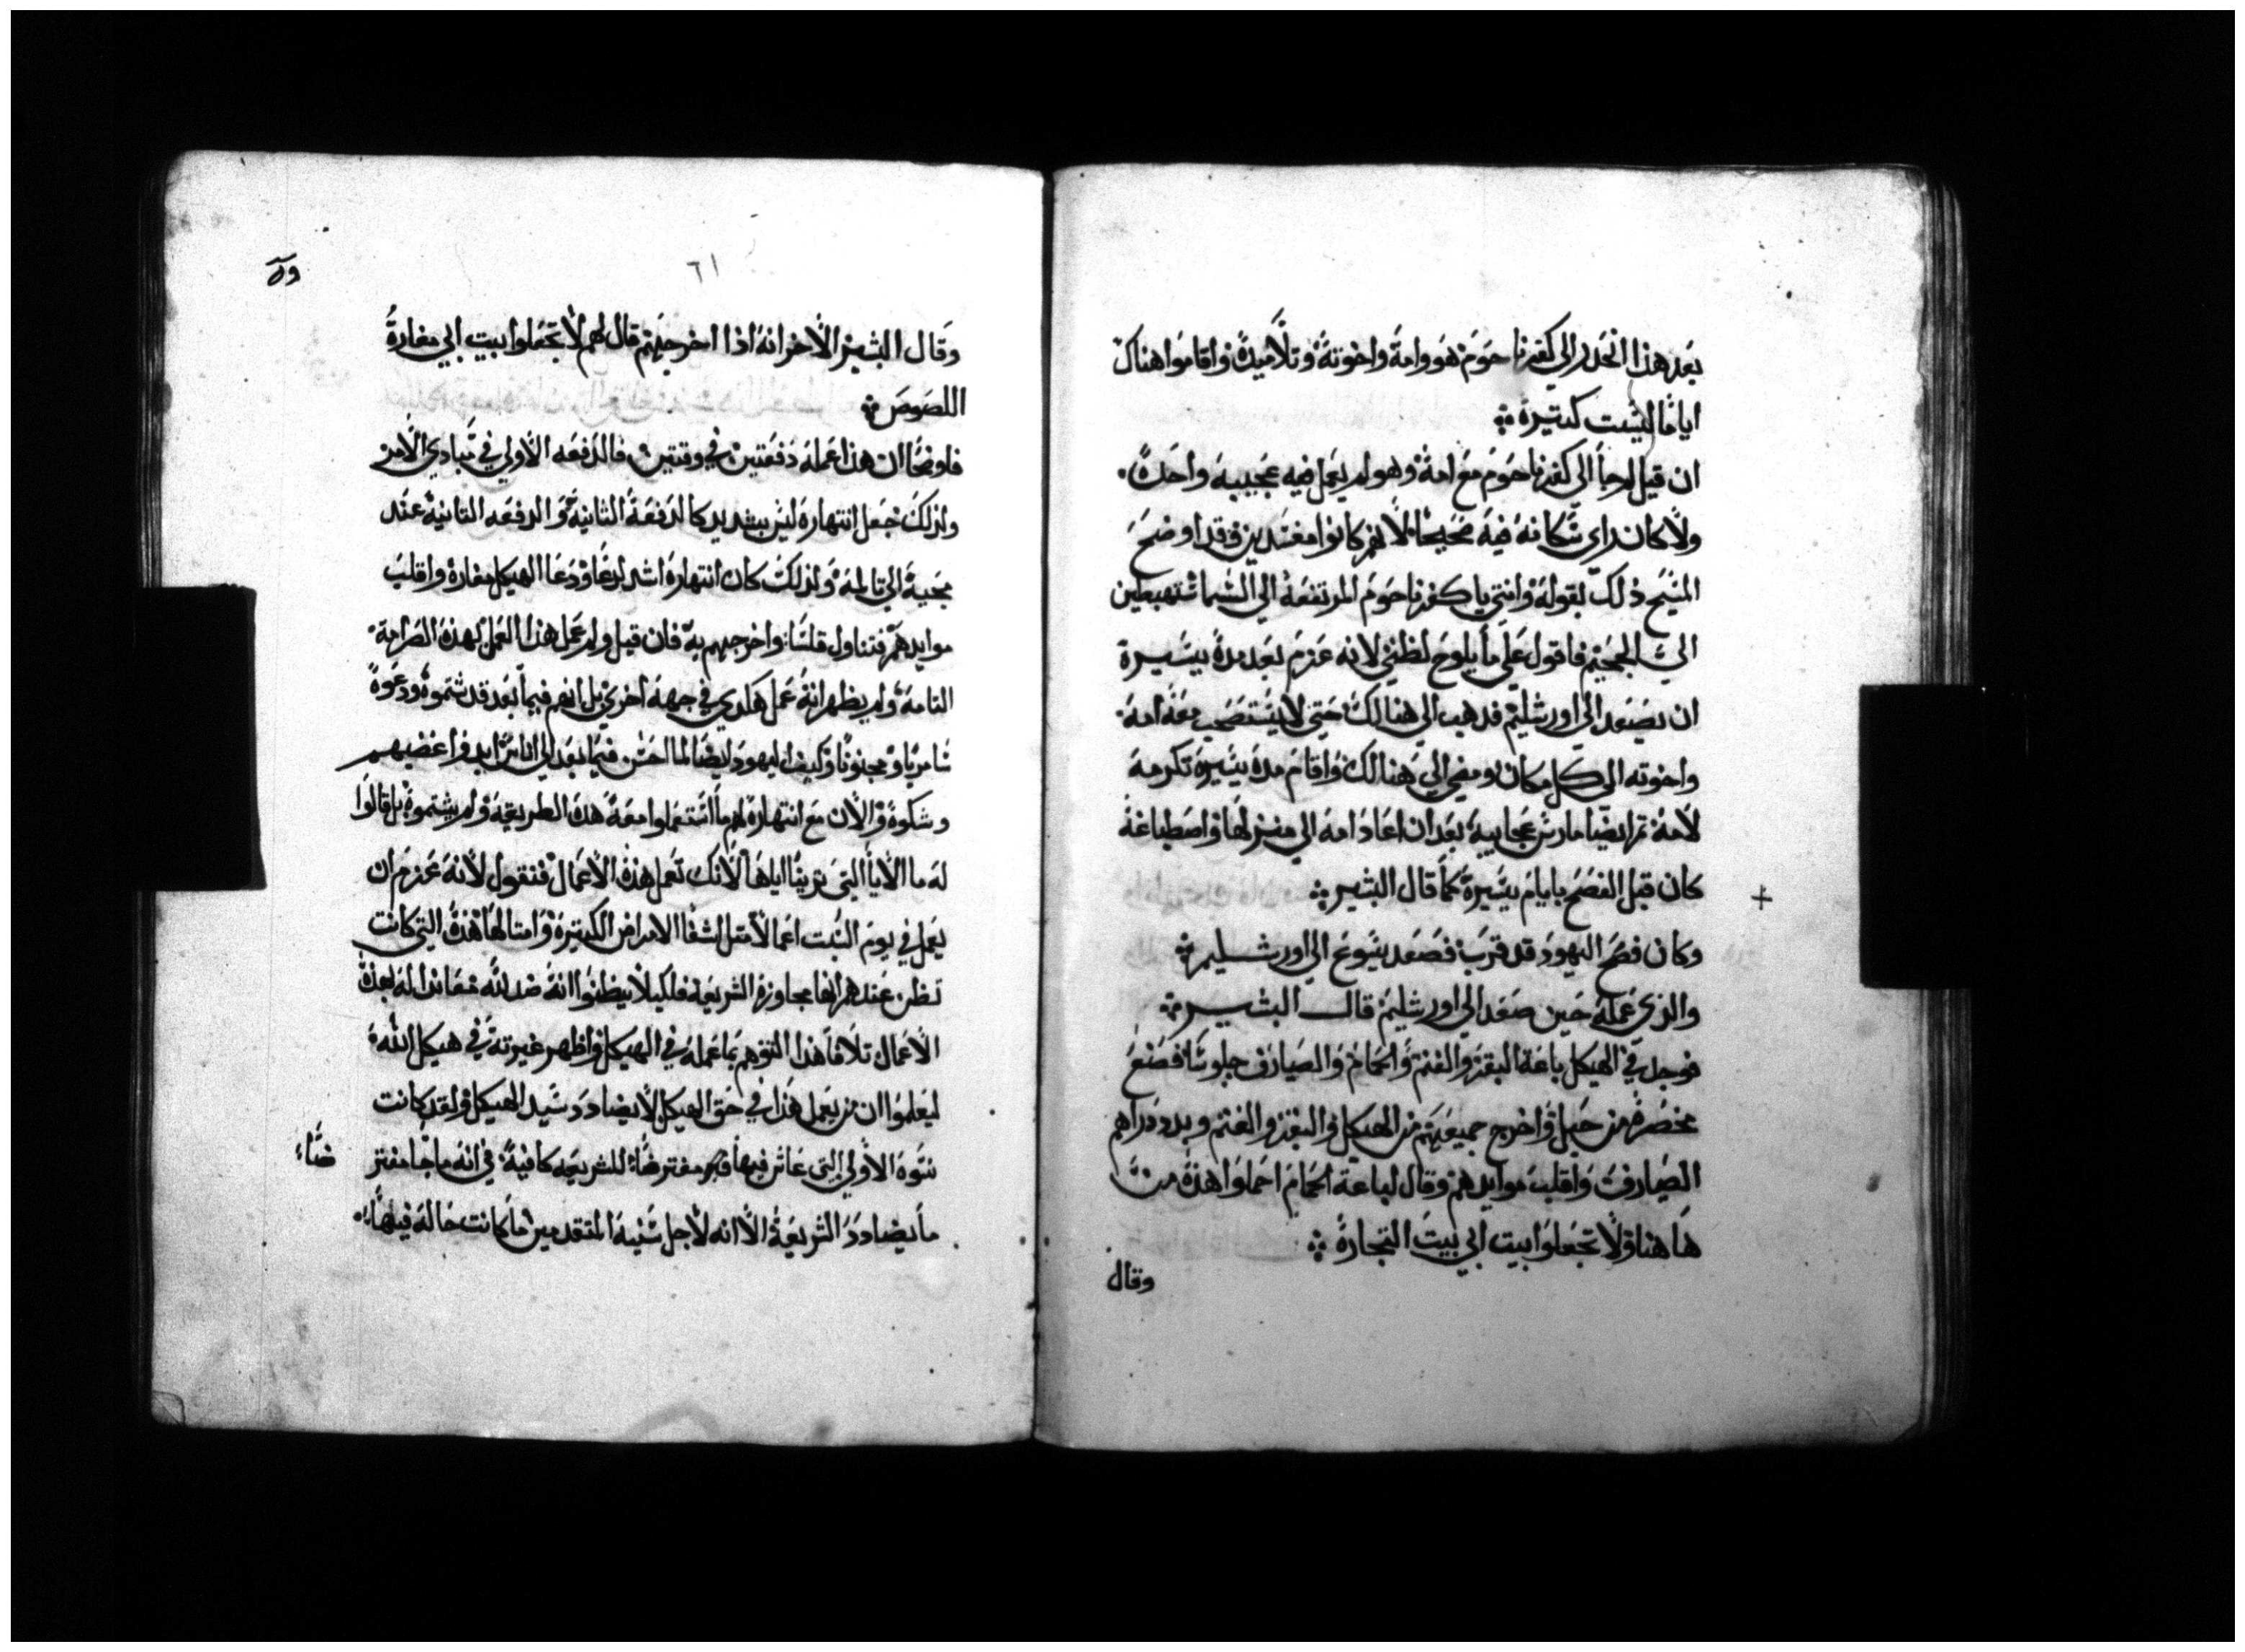 بعد هذا انحدر الي كفرنا حوم هو وامه واخوته وتلاميذه واقاموا هناك
اياما ليست كتيرة
ان قيل لم جا الي كفرنا حوم مع امه وهو لم يعمل فيه عجيبه واحدة
ولا كان راي سكانه فيه صحيحا لانهم كانوا مفسدين وقد اوضح
المسيح ذلك بقوله وانتي يا كفرنا حوم المرتفعة الي السما ستهبطين
الي الجحيم فاقول علي ما يلوح لظني لانه عزم بعد مدة يسيرة
ان يصعد الي اورشليم فدهب الي هنالك حتي لا يستصحب معه امه
واخوته الي كل مكان ومضي الي هنالك واقام مدة يسيرة تكرمه
لامه تم ايضا مارس عجايبه بعد ان اعاد امه الي منزلها واصطباغه
كان قبل الفصح بايام يسيرة كما قال البشير
وكان فصح اليهود قد قرب فصعد يسوع الي اورشليم
والذي عمله حين صعد الي اورشليم قال البشير
فوجد في الهيكل باعة البقر والغنم والحمام والصيارف جلوسا فصنع
مخصرة من حبل واخرج جميعهم من الهيكل والبقر والغنم وبدد دراهم
الصيارف واقلب موايدهم وقال لباعة الحمام احملوا هذة من
ها هنا ولا تجعلوا بيت ابي بيت التجارة
وقال
٦١
وقال البشير الاخر انه اذا اخرجهم قال لهم لا تجعلوا بيت ابي مغارة
اللصوص
فاونحا ان هذا عمله دفعتين في وقتين فالدفعه الاولي في مبادي الامر
ولذلك جعل انتهاره ليس بشديد كالدفعة الثانية والدفعه التانية عند
مجية الي تالمه ولذلك كان انتهاره اشد لدعا ودعا الهيكل مغارة واقلب
موايدهم فتناول قلسا واخرجهم به فان قيل ولم عمل هذا العمل بهذة الصرامة
التامة ولم يظهر انه عمل هكدي في جهة اخري بل انهم فيما بعد قد شتموه ودعوة
سامريا ومجنونا وكيف اليهود ايضا لما احسن فيما بعد الي اناس ابدوا غضبهم
وشكوة والان مع انتهاره لهم ما استعملوا معه هدة الطريقة ولم يشتموة بل قالوا
له ما الايا التي ترينا اياها لانك تعمل هذة الاعمال فنقول لانه عزم ان
يعمل في يوم السبت اعمالا متل شفا الامراض الكتيرة وامتالها هذة التي كانت
تظن عندهم انها مجاوزة الشريعة فلكيلا يظنوا انه ضد لله معاندا له بهذة
الاعمال تلافا هذا التوهم بما عمله في الهيكل واظهر غيرته في هيكل الله
ليعلموا ان من يعمل هذا في حق الهيكل لا يضادد سيد الهيكل ولقد كانت
سنوة الاولي التي عاش فيها وهو مفترضا للشريعه كافية في انه ما جا مفتر
ضاء
ما يضادد الشريعة الا انه لاجل سنيه المتقدمين ما كانت حاله فيها